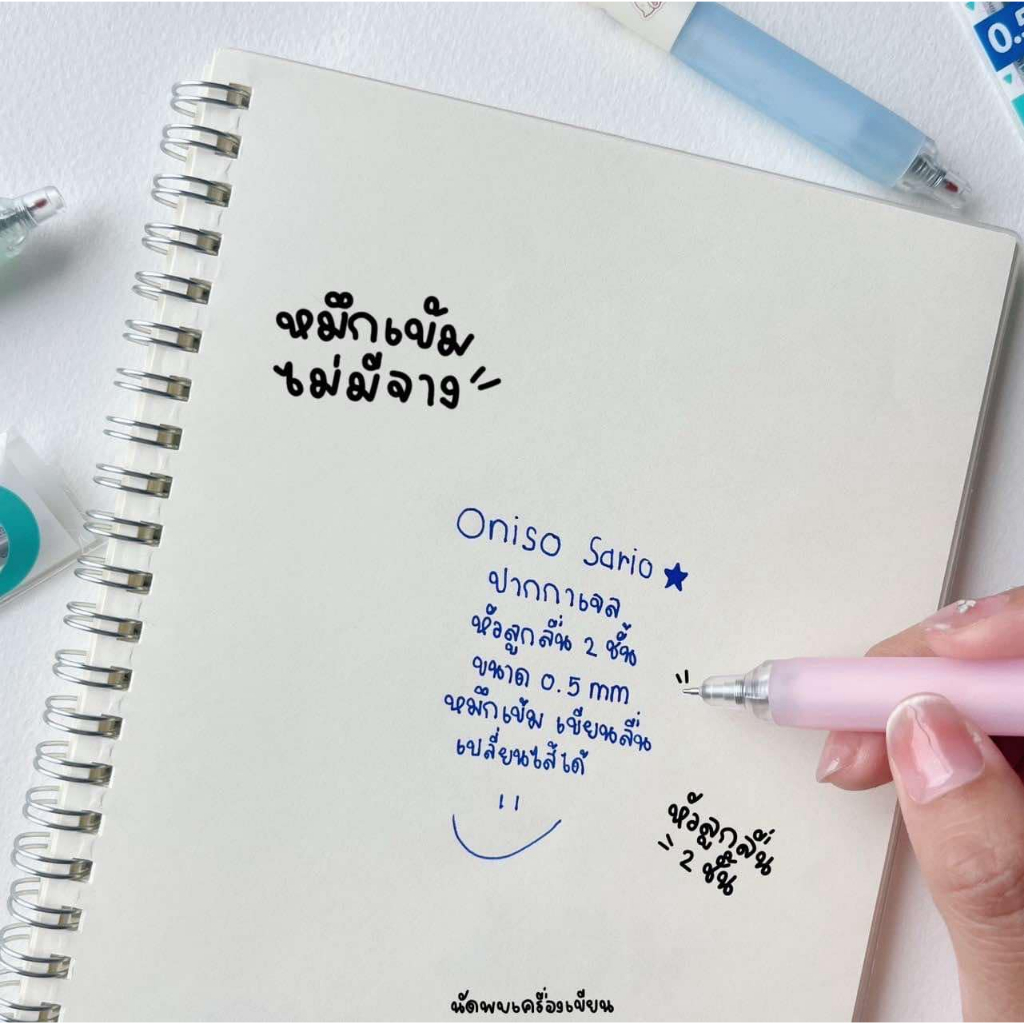 0.5
หมึกเข้ม
ไม่มีจาง
Oniso Sario
ปากกาเจล
หัวลูกลื่น 2 ชั้น
ขนาด 0.5 mm
หมึกเข้ม เขียนลื่น
เปลี่ยนไส้ได้
หัวลูกลื่น
2 ชั้น
นัดพบเครื่องเขียน